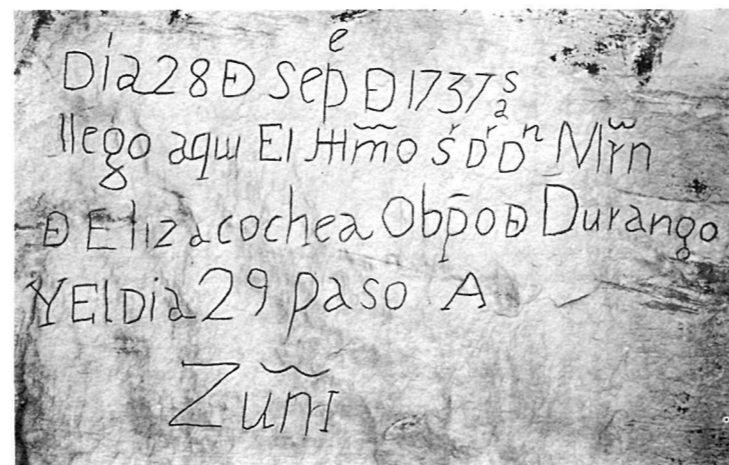 Dia 28 Đ Sepᵉ Đ 1737 aˢ
llego aqui El Illm̃o Sʳ Dʳ Dⁿ Mrñ
Đ Elizacochea Obp̄o Đ Durango
Y El Dia 29 paso A
Zuñi